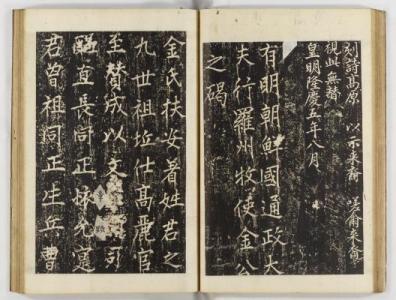 刻詩髙原 以示来裔 嗟爾来裔
視此無替
皇明隆慶五年八月
有明朝鮮國通政大
夫行羅州牧使金公
之碣
金氏扶安着姓君之
九世祖坵仕高麗官
至贊成以文
宜長同正
君曽祖同正生丘曹